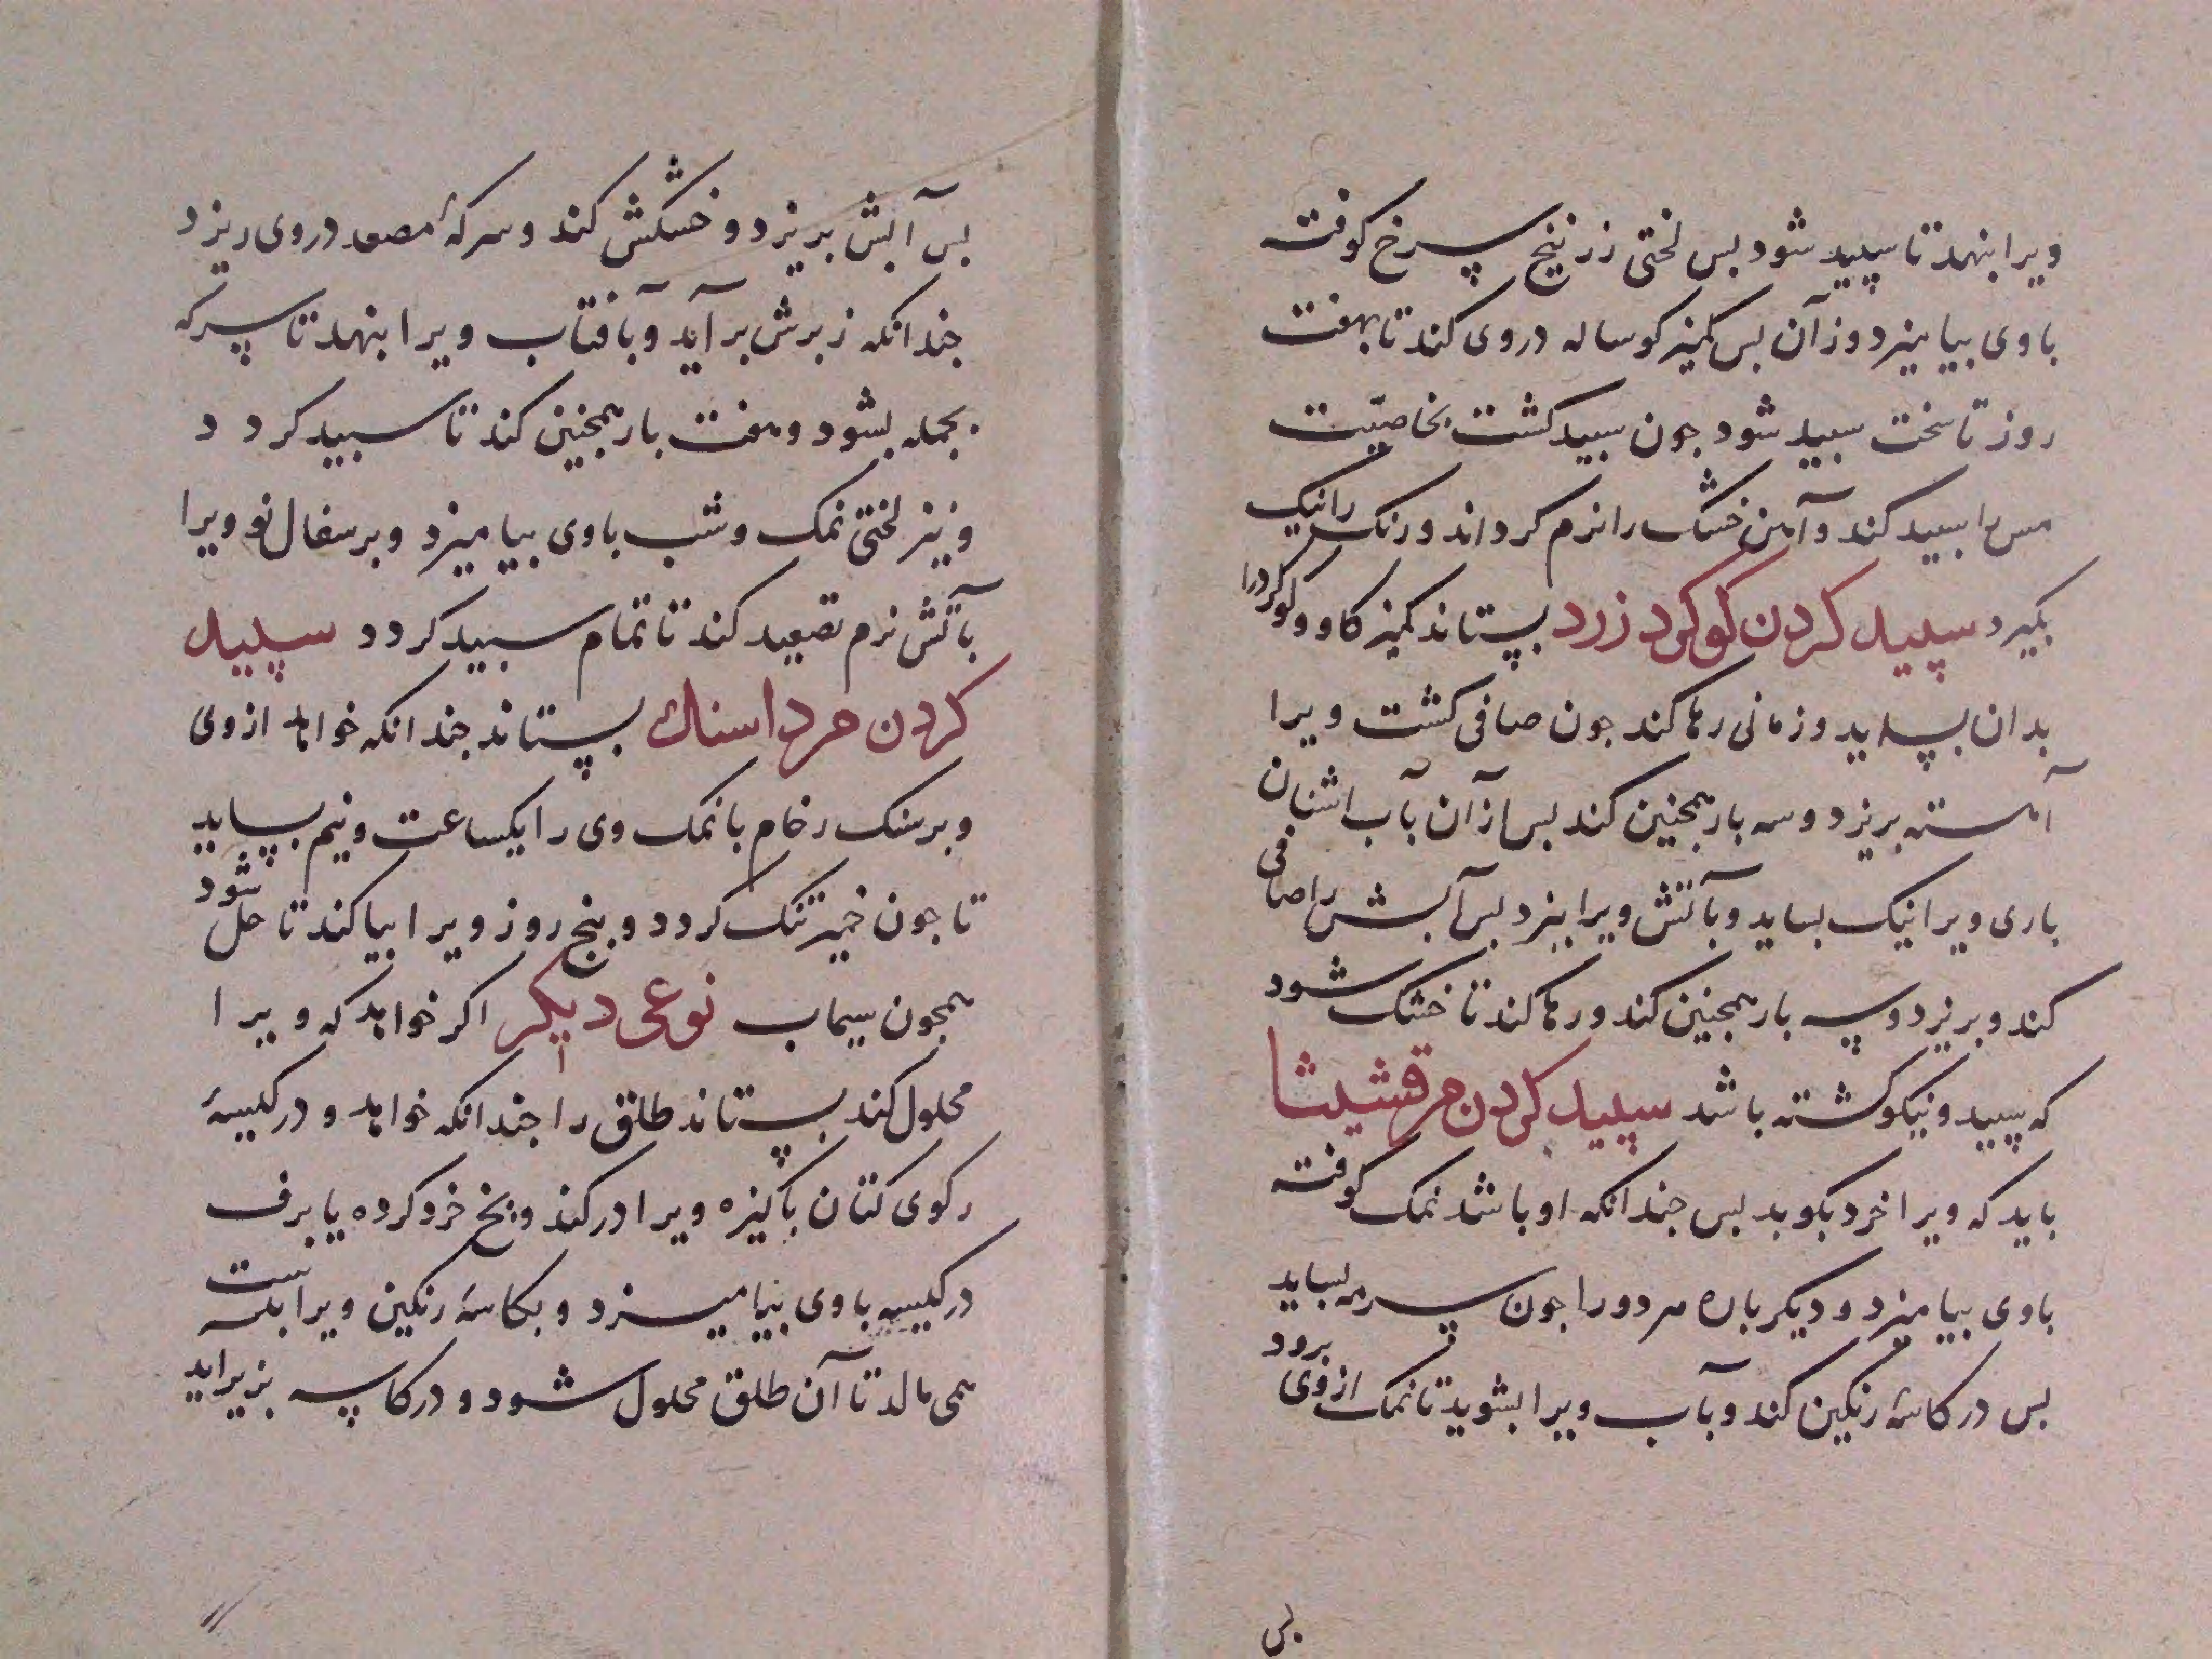 ویرا بنهد تا سپید شود بس لختی زرنیخ سرخ کوفته
باوی بیامیزد وزآن بس کمیز کوساله دروی کند تا بهفت
روز تا سخت سبید شود جون سبید کشت بخاصیّت
مس را سبید کند و آهن خشک را نرم کرداند و رنک را نیک
بکیرد سپید کردن کوکرد زرد بستاند کمیز کاو و کوکردرا
بدان بساید و زمانی رها کند جون صافی کشت ویرا
آهسته بریزد و سه بار همجنین کند بس ازآن بآب اشنان
باری ویرا نیک بساید و بآتش ویرا بپزد بس آبش را صافی
کند و بریزد و سه بار همجنین کند و رها کند تا خشک شود
که سپید و نیکو کشته باشد سپید کردن مرقشیشا
باید که ویرا خرد بکوبد بس جندانکه او باشد نمک کوفته
باوی بیامیزد و دیکر باره هر دو را جون سرمه بساید
بس در کاسهٔ رنکین کند و بآب ویرا بشوید تا نمک ازوی برود
بس
بس آبش بریزد و خشکش کند و سرکهٔ مصعد دروی ریزد
جندانکه زبرش برآید و بآفتاب ویرا بنهد تا سرکه
بجمله بشود و هفت بار همجنین کند تا سبید کردد
و نیز لختی نمک و شب باوی بیامیزد و بر سفال نو ویرا
بآتش نرم تصعید کند تا تمام سبید کردد سپید
کردن مرداسنک بستاند جندانکه خواهد ازوی
و بر سنک رخام با نمک وی را یکساعت و نیم بساید
تا جون خمیر تنک کردد و بنج روز ویرا بیا کند تا حل شود
همجون سیماب نوعی دیکر اکر خواهد که ویرا
محلول کند بستاند طلق را جندانکه خواهد و در کیسهٔ
رکوی کتان باکیزه ویرا درکند و یخ خرو کرده یا برف
در کیسه باوی بیامیزد و بکاسهٔ رنکین ویرا بدست
همی مالد تا آن طلق محلول شود و در کاسه بزیراید